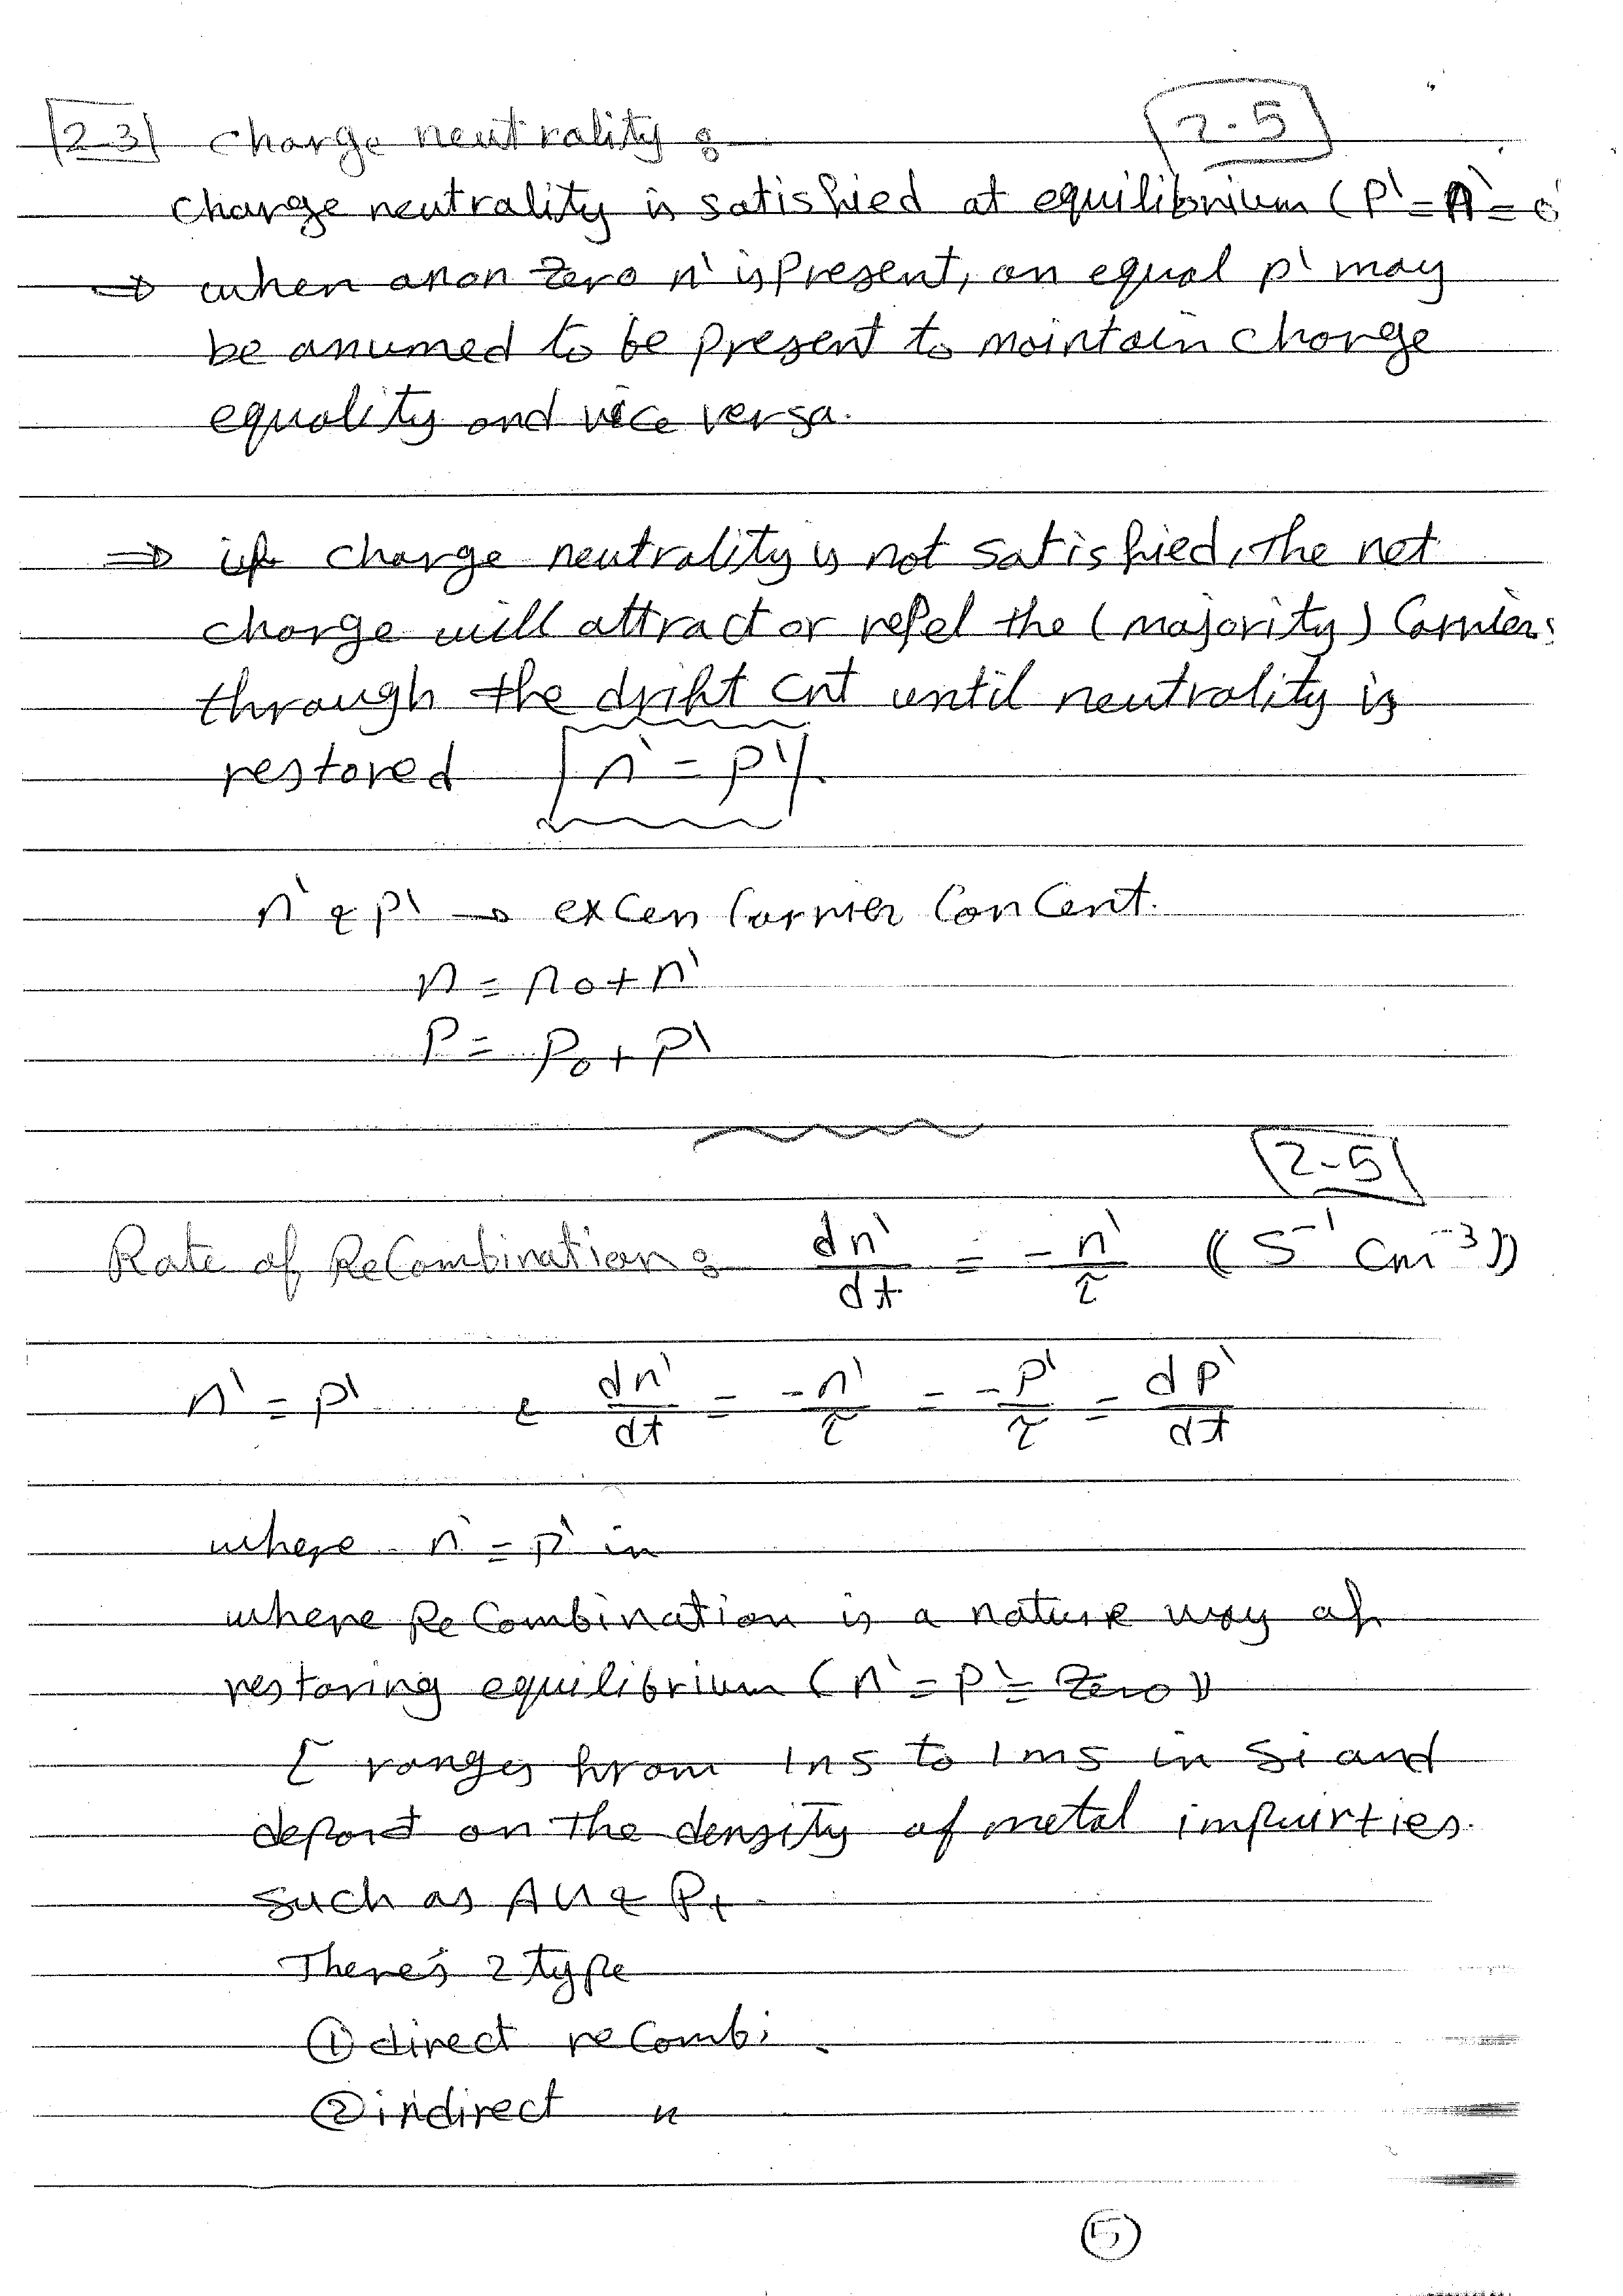 2-3 charge neutrality : 2-5
charge neutrality is satisfied at equilibrium (p' = n' = 0
⇒ when a non zero n' is present, an equal p' may
be assumed to be present to maintain charge
equality and vice versa.
⇒ if charge neutrality is not satisfied, the net
charge will attract or repel the (majority) Carriers
through the drift Cnt until neutrality is
restored n' = p'.
n' & p' → excess Carrier Concent.
n = n0 + n'
P = P0 + P'
2-5
Rate of ReCombination : dn'/dt = -n'/τ (S^-1 Cm^-3)
n' = p' & dn'/dt = -n'/τ = -P'/τ = dP'/dt
where n' = p' in
where ReCombination is a nature way of
restoring equilibrium (n' = p' = Zero)
τ ranges from 1ns to 1ms in Si and
depand on the density of metal impurties.
Such as AU & Pt
There's 2 type
① direct reCombi.
② indirect "
5